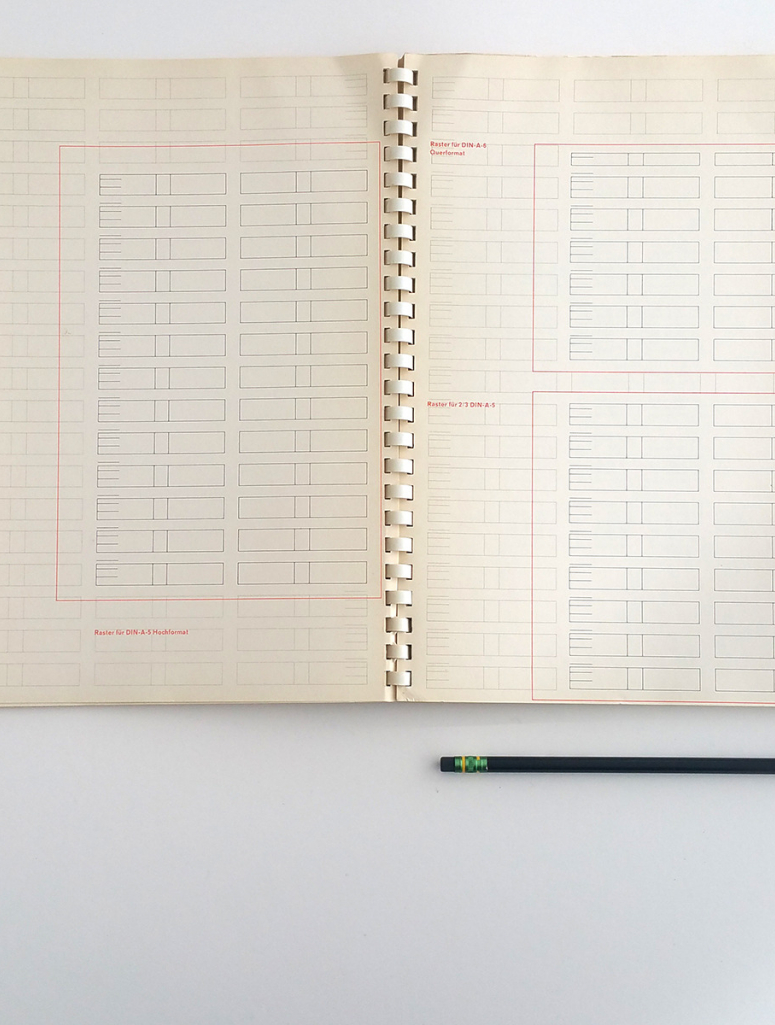 Raster für DIN-A-5 Hochformat
Raster für DIN-A-6
Querformat
Raster für 2/3 DIN-A-5